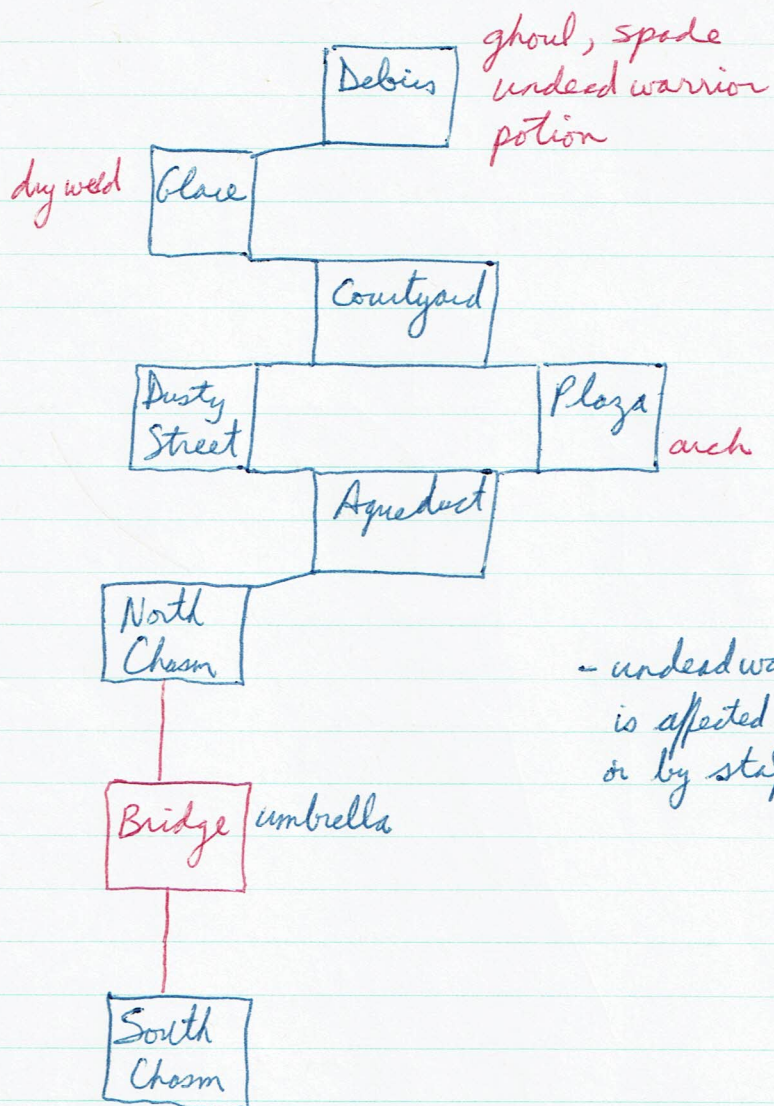 ghoul, spade
Debris
undead warrior
potion
dry weld
Glace
Courtyard
Dusty
Street
Plaza
arch
Aqueduct
North
Chasm
- undead wa
is affected
or by sta
Bridge
umbrella
South
Chasm